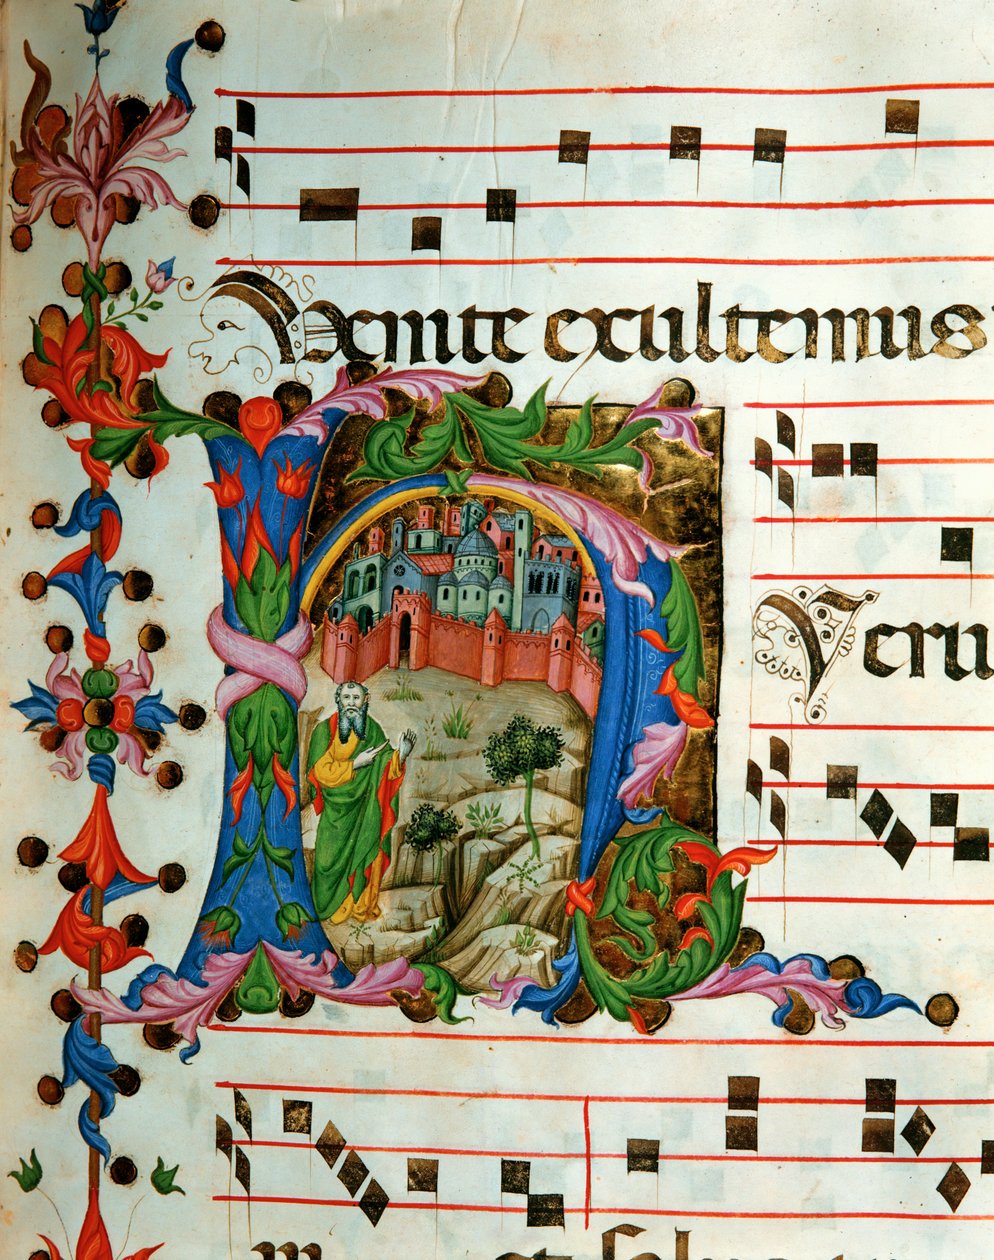 Venite exultemus
HYeru